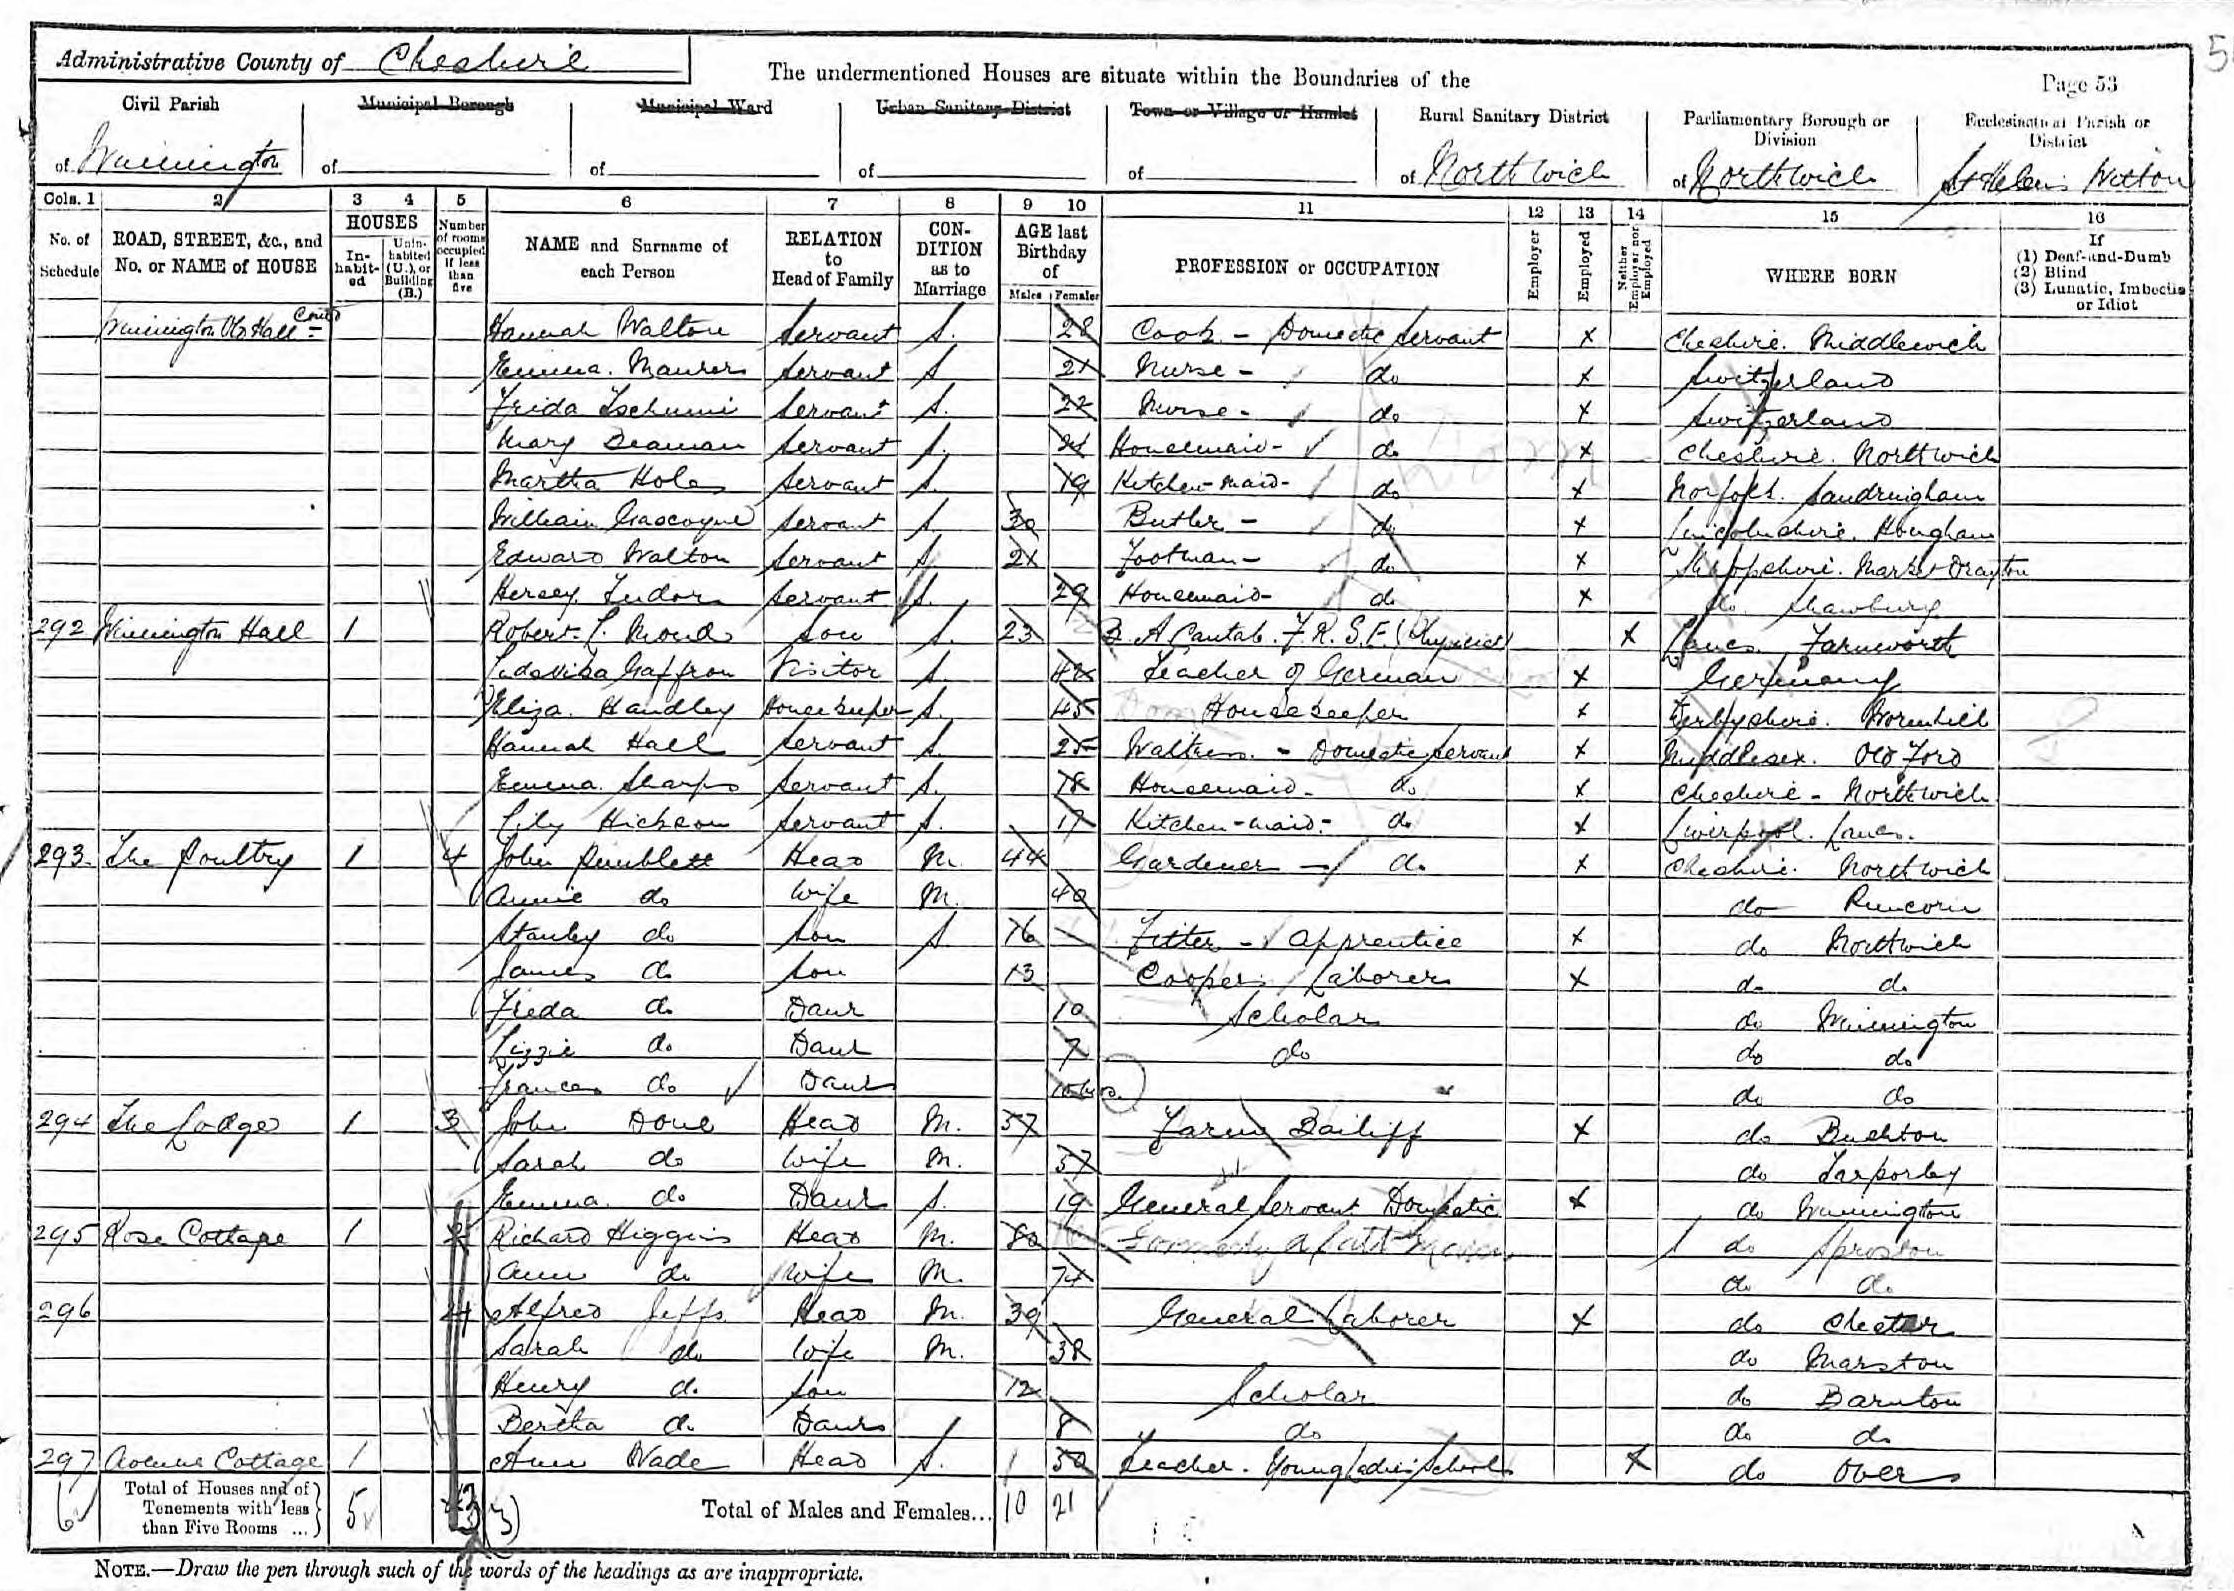 Administrative County of Cheshire
The undermentioned Houses are situate within the Boundaries of the
Page 53
Civil Parish of Winnington
Municipal Borough of
Municipal Ward of
Urban Sanitary District of
Town or Village or Hamlet of
Rural Sanitary District of Northwich
Parliamentary Borough or Division of Northwich
Ecclesiastical Parish or District St Helens Witton
Cols. 1 2 3 4 5 6 7 8 9 10 11 12 13 14 15 16
No. of Schedule
ROAD, STREET, &c., and No. or NAME of HOUSE
HOUSES
Inhabited
Uninhabited (U.), or Building (B.)
Number of rooms occupied if less than five
NAME and Surname of each Person
RELATION to Head of Family
CONDITION as to Marriage
AGE last Birthday of
Males Females
PROFESSION or OCCUPATION
Employer
Employed
Neither Employer nor Employed
WHERE BORN
If (1) Deaf-and-Dumb (2) Blind (3) Lunatic, Imbecile or Idiot
Winnington Old Hall Contd Hannah Walton Servant S. 28 Cook - Domestic Servant X Cheshire. Middlewich
Emma. Maurer Servant S 21 Nurse - do X Switzerland
Frida Tschumi Servant S. 22 Nurse - do X Switzerland
Mary Deaman Servant S. 21 Housemaid - do X Cheshire. Northwich
Martha Holes Servant S. 19 Kitchen-maid - do X Norfolk. Sandringham
William Gascoyne Servant S 30 Butler - do X Lincolnshire. Hougham
Edward Walton Servant S 21 Footman - do X Shropshire. Market Drayton
Hersey. Tudor Servant S. 29 Housemaid - do X do Shawbury
292 Winnington Hall 1 Robert. L. Mond Son S. 23 B. A Cantab. F.R.S.E. (Physicist) X Lancs. Farnworth
Gaffron Visitor S. 42 Teacher of German X Germany
Eliza. Handley Housekeeper S. 45 Housekeeper X Derbyshire. Wormhill
Hannah Hall Servant S. 25 Waitress. - Domestic Servant X Middlesex. Old Ford
Emma. Sharps Servant S. 18 Housemaid - do X Cheshire - Northwich
Lily Hickson Servant S. 17 Kitchen-maid - do X Liverpool. Lancs.
293 The Poultry 1 4 John Rumblett Head M. 44 Gardener - do X Cheshire. Northwich
Annie do Wife M. 40 do Runcorn
Stanley do Son S 16 Fitter - apprentice X do Northwich
James do Son 13 Cooper Laborer X do do
Freda do Daur 10 Scholar do Winnington
Lizzie do Daur 7 do do do
Frances do Daur do do
294 The Lodge 1 3 John Done Head M. 37 Farm Bailiff X do Bushton
Sarah do Wife M. 37 do Tarporley
Emma. do Daur S. 19 General Servant Domestic X do Winnington
295 Rose Cottage 1 2 Richard Higgins Head M. 80 Formerly a Salt Maker do Sproston
Ann do Wife M. 74 do do
296 4 Alfred Jeffs Head M. 39 General Laborer X do Chester
Sarah do Wife M. 38 do Marston
Henry do Son 12 Scholar do Barnton
Bertha do Daur 8 do do do
297 Avenue Cottage 1 Ann Wade Head S. 50 Teacher. Young Ladies School X do Over
Total of Houses and of Tenements with less than Five Rooms ... 5 3
Total of Males and Females... 10 21
NOTE.—Draw the pen through such of the words of the headings as are inappropriate.